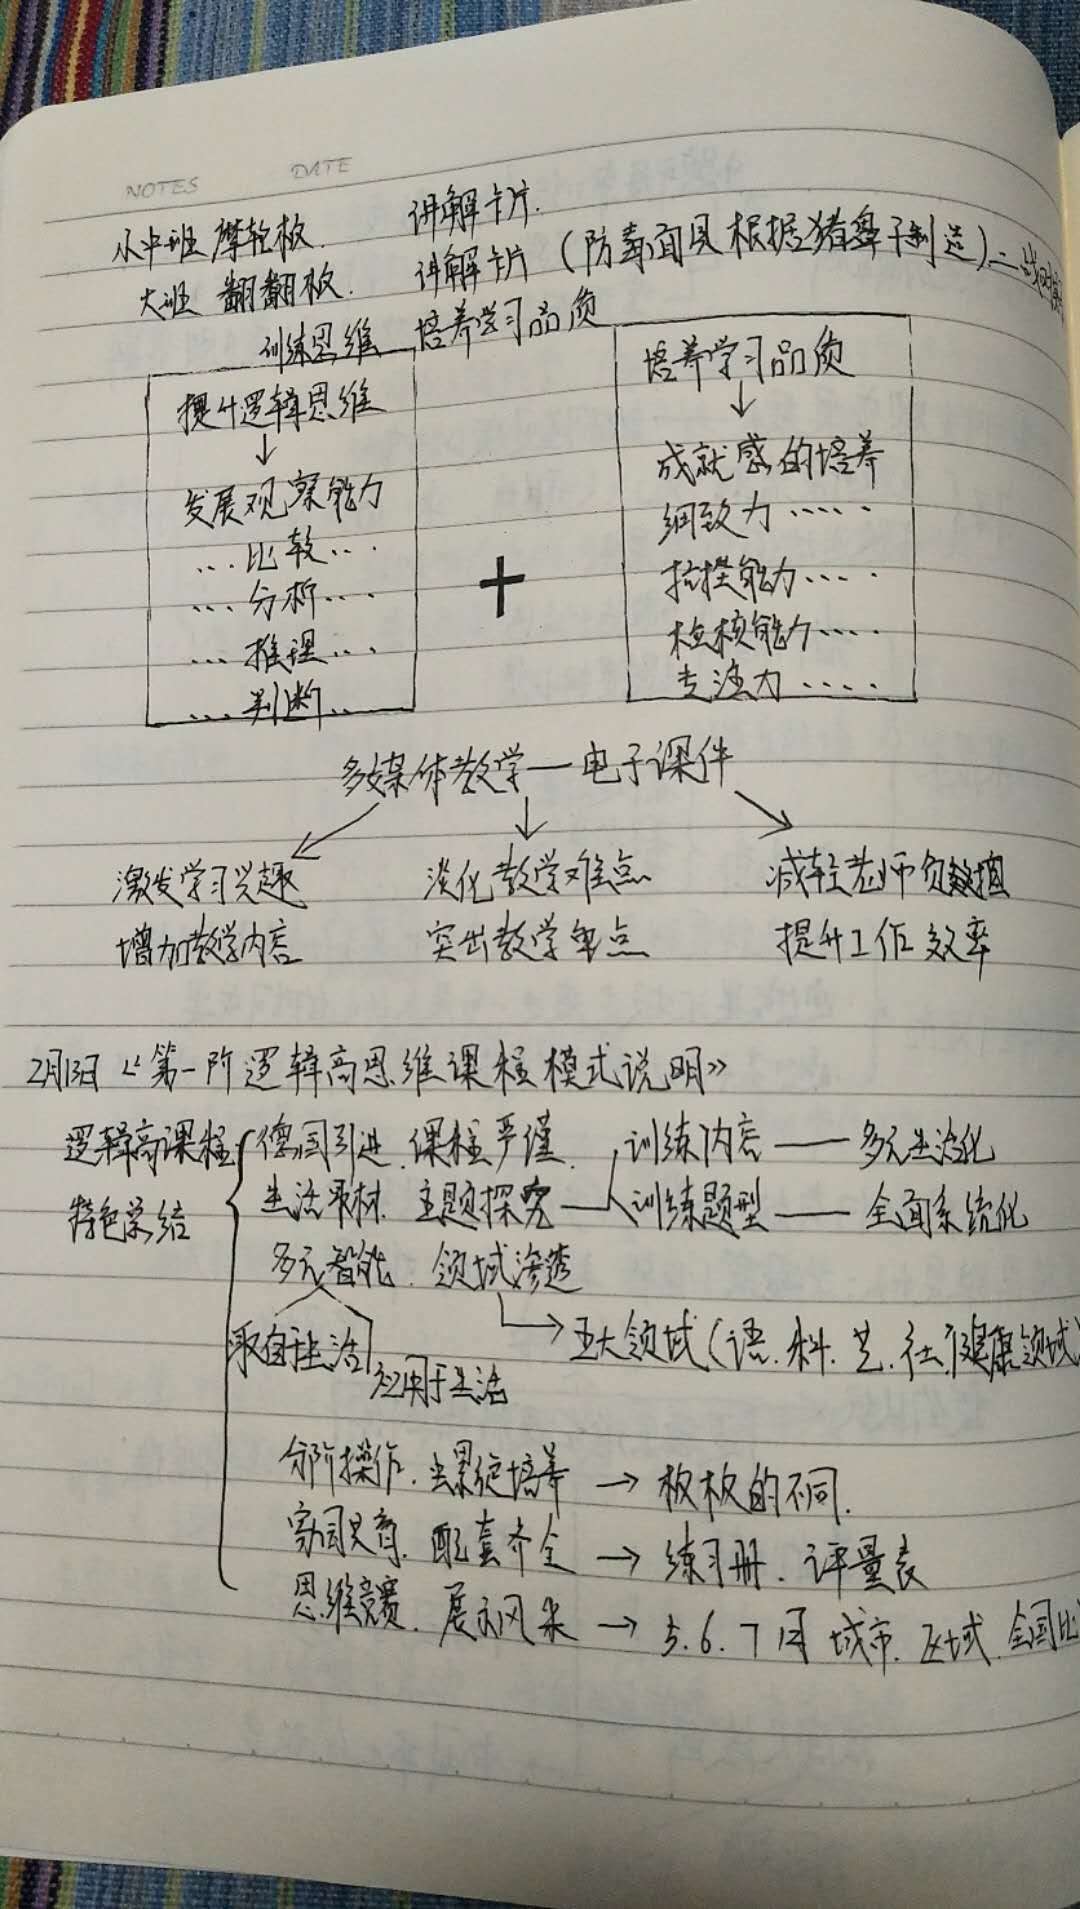 NOTES DATE
小中班 摩轮板. 讲解卡片.
大班 翻翻板. 讲解卡片 (防毒面具根据猪鼻子制造)二战时
训练思维 培养学习品质
提升逻辑思维
↓
发展观察能力
...比较...
...分析....
...推理...
...判断...
+
培养学习品质
↓
成就感的培养
细致力·····
抗挫能力····
检核能力····
专注力····
多媒体教学—电子课件
激发学习兴趣 淡化教学难点 减轻老师负担
增加教学内容 突出教学重点 提升工作效率
2月13日《第一阶逻辑高思维课程模式说明》
逻辑高课程 德国引进.课程严谨. 训练内容——多元生活化
特色总结 生活取材.主题探究—训练题型——全面系统化
多元智能.领域渗透
取自生活 → 五大领域(语.科.艺.社.健康领域)
应用于生活
分阶操作.螺旋培养→板板的不同.
家园共育.配套齐全→练习册.评量表
思维竞赛.展示风采→5.6.7月 城市.区域.全国比